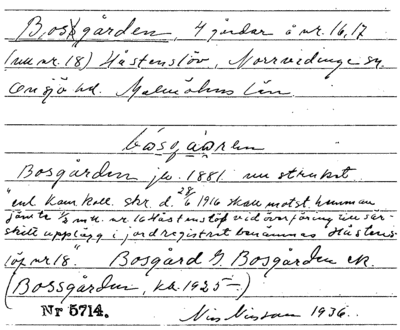 Bosgården, 4 gårdar å nr. 16, 17
(nu nr. 18) Hästenslöv, Norrvidinge sn.
Onsjö hd. Malmöhus län.
båsgåɹen
Bosgården jb. 1881 nu struket
"enl kam. koll. skr. d. 28/6 1916 skall motst. hemman
jämte 1/2 mtl. nr. 16 Hästenslöf vid överföring till sär-
skilt upplägg i jordregistret benämnas Hästens-
löf nr 18". Bosgård G. Bosgården ek.
(Bossgården, ka. 1925–)
Nr 5714. Nils Nilsson 1936.